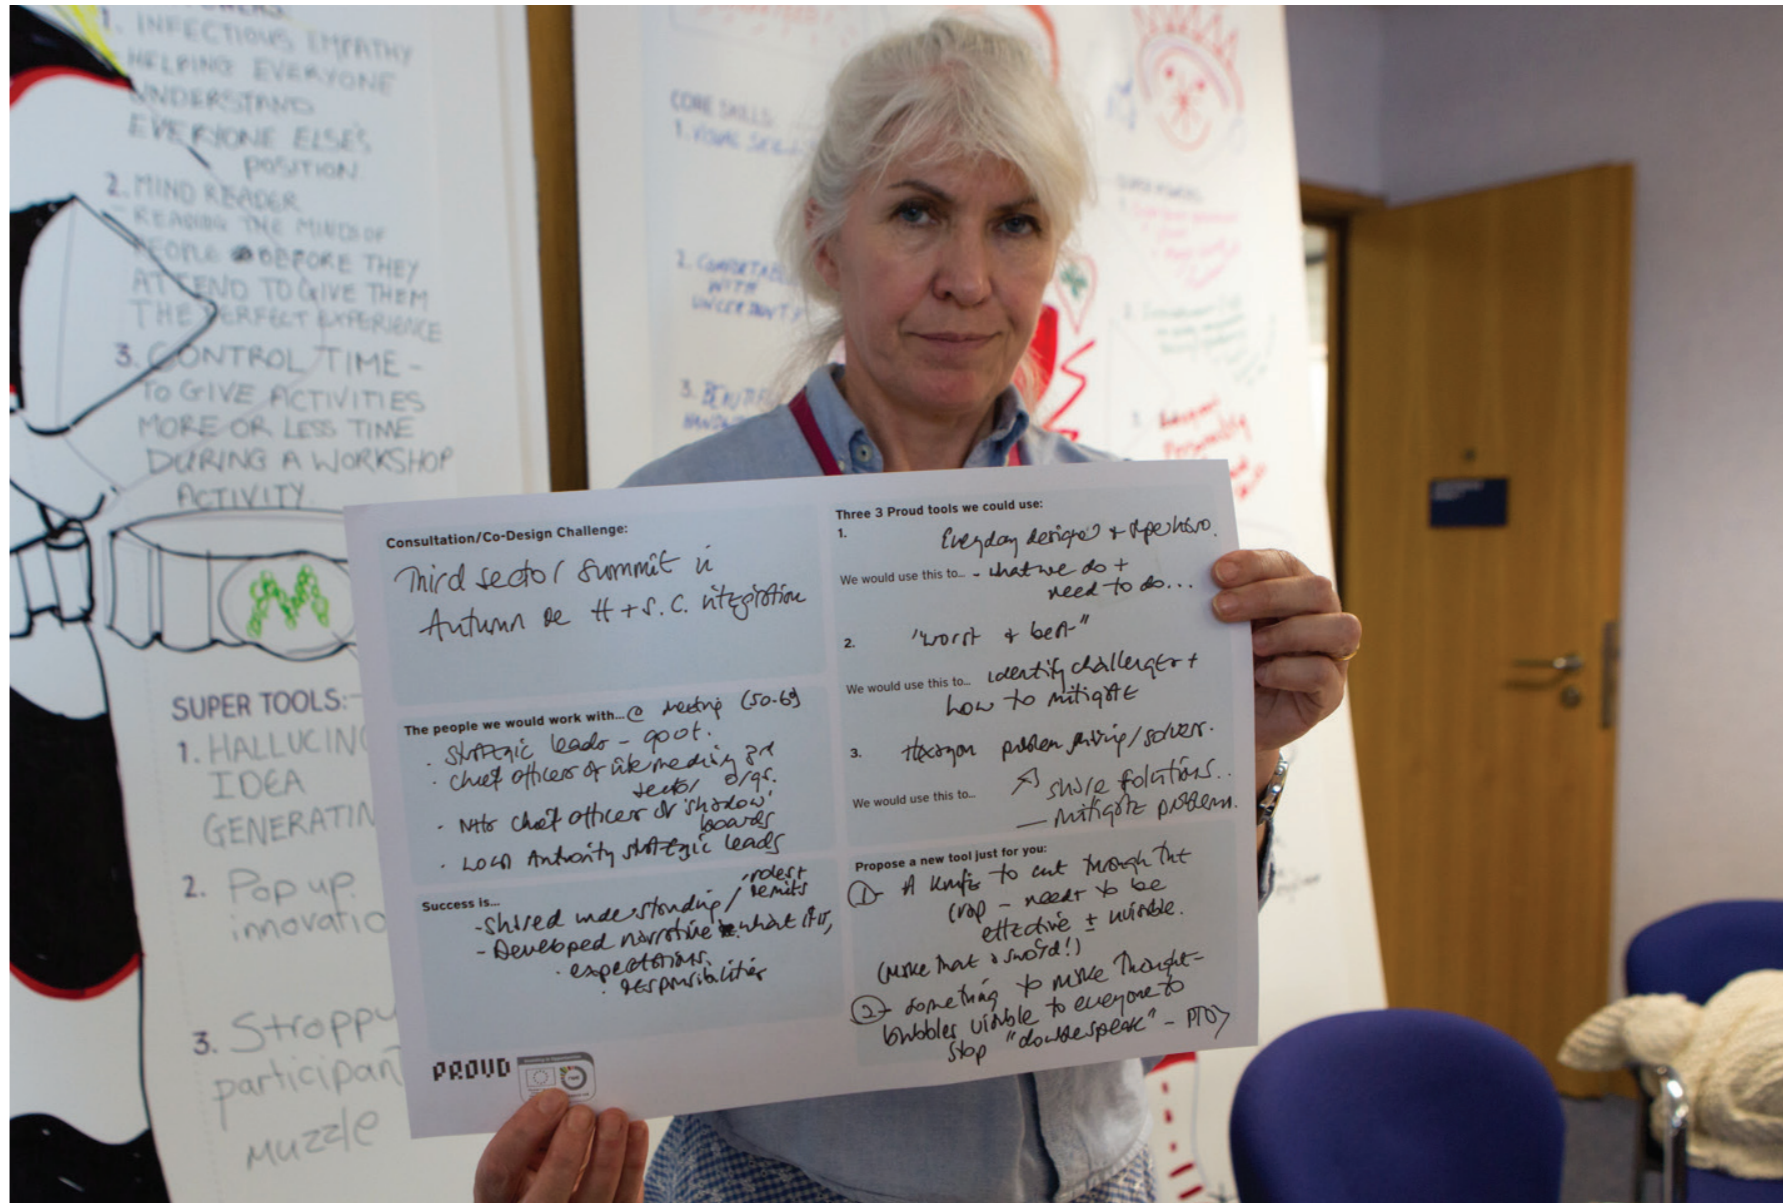 1. INFECTIOUS EMPATHY
HELPING EVERYONE
UNDERSTAND
EVERYONE ELSE'S
POSITION
2. MIND READER
- READING THE MINDS OF
PEOPLE BEFORE THEY
ATTEND TO GIVE THEM
THE PERFECT EXPERIENCE
3. CONTROL TIME -
TO GIVE ACTIVITIES
MORE OR LESS TIME
DURING A WORKSHOP
ACTIVITY.
M
SUPER TOOLS:-
1. HALLUCINO
IDEA
GENERATIN
2. Pop up
innovatio
3. Stroppy
participan
muzzle
CORE SKILLS
1. VISUAL SKILL
2. COMFORTABL
WITH
UNCERTAINTY
3. BEAUTIFUL
Consultation/Co-Design Challenge:
Third sector summit in
Autumn re H + S.C. integration
The people we would work with... @ meeting (50-60)
· Strategic leads - govt.
· Chief officers of intermediary 3rd
sector orgs.
· NHS chief officers of 'shadow'
boards
· Local Authority strategic leads
Success is...
- Shared understanding / roles +
remits
- Developed narrative what it is,
· expectations.
· responsibilities
PROUD
Three 3 Proud tools we could use:
1. Everyday designer + superhero.
We would use this to... - what we do +
need to do...
2. "worst + best"
We would use this to... identify challenges +
how to mitigate
3. Hexagon problem solving/solvers.
We would use this to... share solutions..
— mitigate problems.
Propose a new tool just for you:
① - A knife to cut through the
crap - needs to be
effective ± invisible.
(make that a sword!)
② - something to make thought-
bubbles visible to everyone to
stop "doublespeak" - PTO>